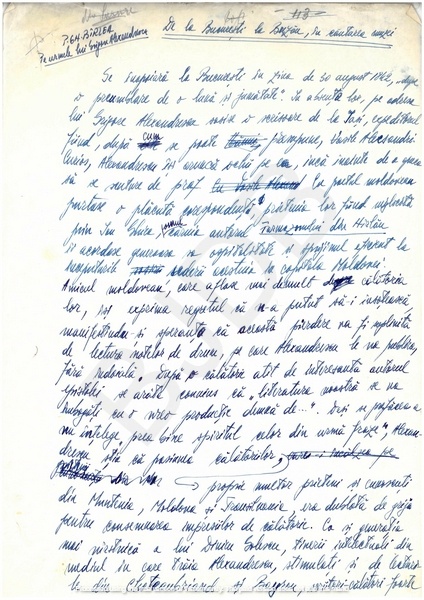 113
P. GH. BÎRLEA
Pe urmele lui Grigore Alexandrescu
De la București la Buzău, în căutarea muzei
Se înapoiară la București în ziua de 30 august 1842, „după
o preumblare de o lună și jumătate”. În absența lor, pe adresa
lui Grigore Alexandrescu sosise o scrisoare de la Iași, expeditorul
fiind, după cum se poate presupune, Vasile Alecsandri
Curios, Alexandrescu își aruncă ochii pe ea, încă înainte de a
să se scuture de praf. Cu poetul moldovean
purtase o plăcută corespondență, prietenia lor fiind mijlocită
prin Ion Ghica, căruia autorul
îi acordase generoasa sa ospitalitate și sprijinul
șederii acestuia în capitala Moldovei.
Amicul moldovean, care aflase mai demult călătoria
lor, își exprima regretul că n-a putut să-i însoțească
manifestîndu-și speranța că această pierdere va fi împlinită
de lectura notelor de drum, pe care Alexandrescu le va publica,
fără îndoială. După o călătorie atît de interesantă autorul
epistolei se arăta convins că „literatura noastră se va
îmbogăți cu o nouă producție demnă de...”. Deși se prefăcea a
nu înțelege „prea bine spiritul celor din urmă fraze”, Alexan-
drescu știa că pasiunea călătoriilor,
proprie multor prieteni și cunoscuți
din Muntenia, Moldova și Transilvania, era dublată de grija
pentru consemnarea impresiilor de călătorie. Ca și generația
mai vîrstnică a lui Dinicu Golescu, tinerii intelectuali din
mediul în care trăia Alexandrescu, stimulați și de lectura
lui din Chateaubriand și scriitori-călători foarte